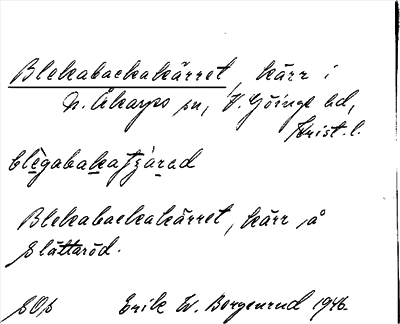 Blekabackakärret, kärr i
N. Åkarps sn, V. Göinge hd,
Krist. l.
blègabakatjárad
Blekabackakärret, kärr å
Slättaröd.
SOS Erik W. Borgenrud 1946.